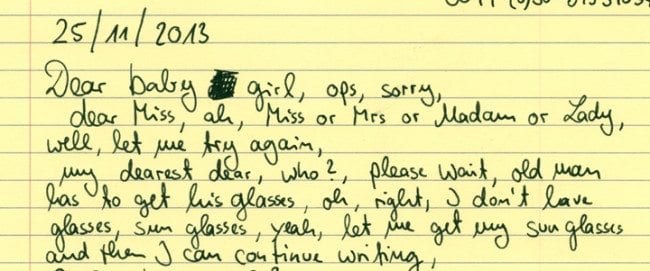 25/11/2013
Dear baby girl, ops, sorry,
dear Miss, ah, Miss or Mrs or Madam or Lady,
well, let me try again,
my dearest dear, who?, please wait, old man
has to get his glasses, oh, right, I don't have
glasses, sun glasses, yeah, let me get my sun glasses
and then I can continue writing,